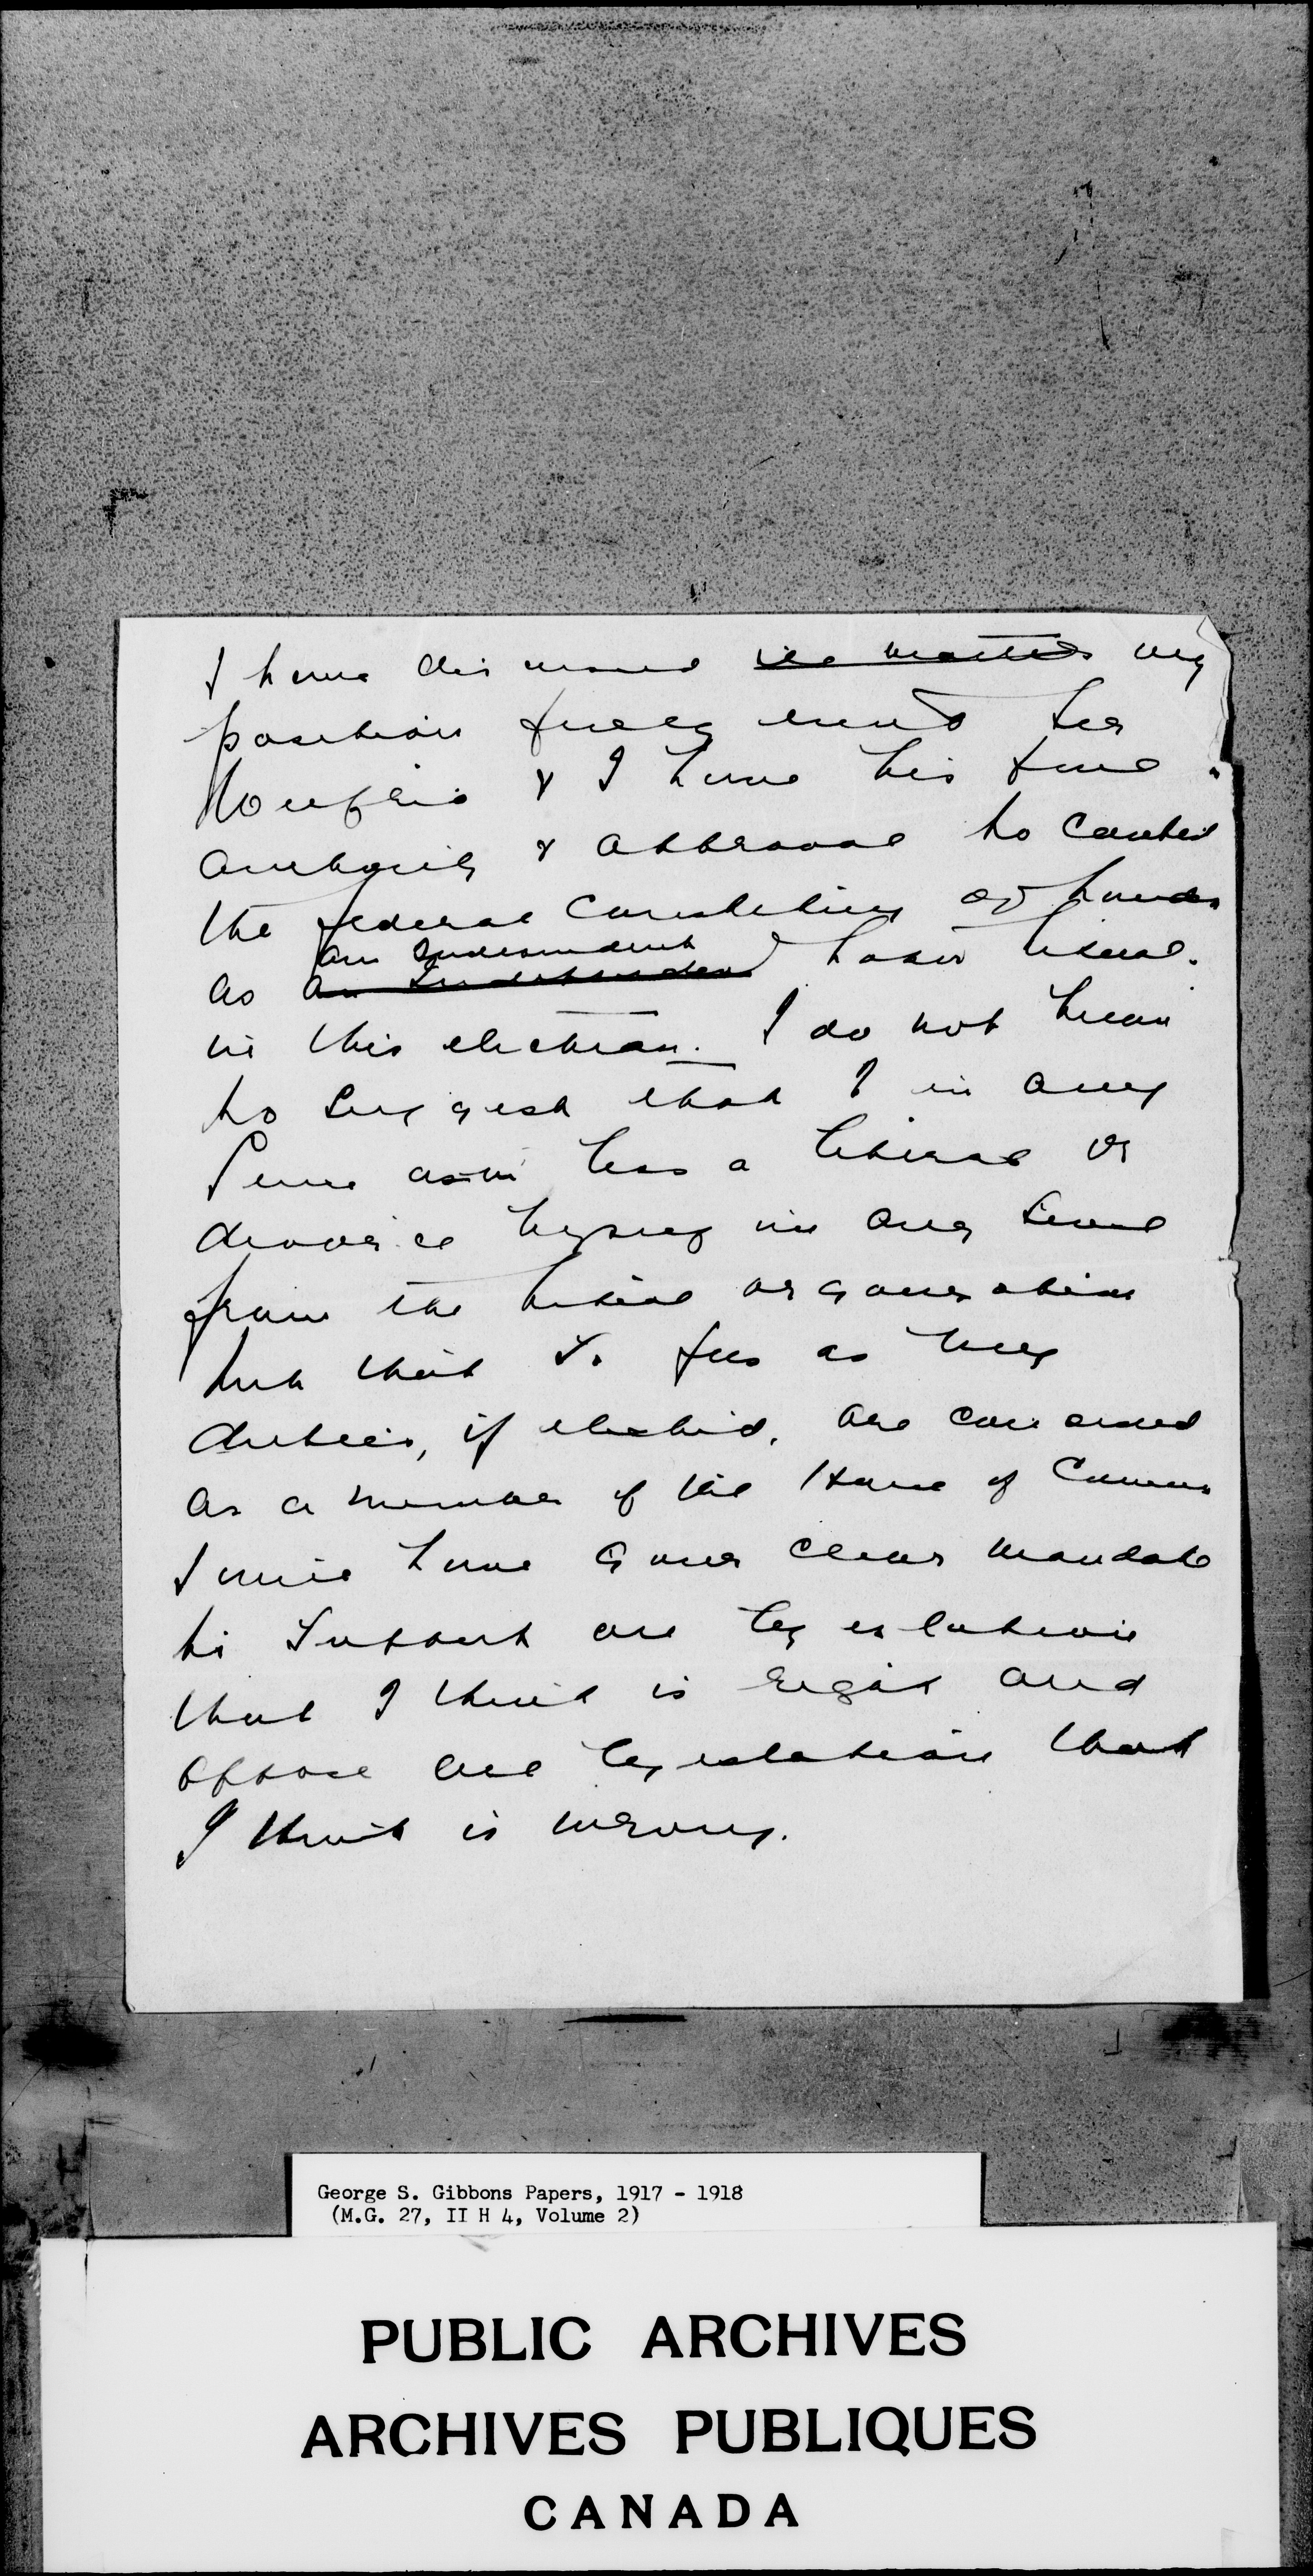 I have discussed the matter my
position fully with Sir
Wilfrid & I have his full
authority & approval to contest
the federal constituency of London
an Independent
as an Independent Labor Liberal.
in this election. I do not mean
to suggest that I in any
sense am less a Liberal or
divorce myself in any sense
from the Liberal organization
but that so far as my
duties, if elected, are concerned
as a member of the House of Commons
I will have a clear mandate
to support all legislation
that I think is right and
oppose all legislation that
I think is wrong.
George S. Gibbons Papers, 1917 - 1918
(M.G. 27, II H 4, Volume 2)
PUBLIC ARCHIVES
ARCHIVES PUBLIQUES
CANADA